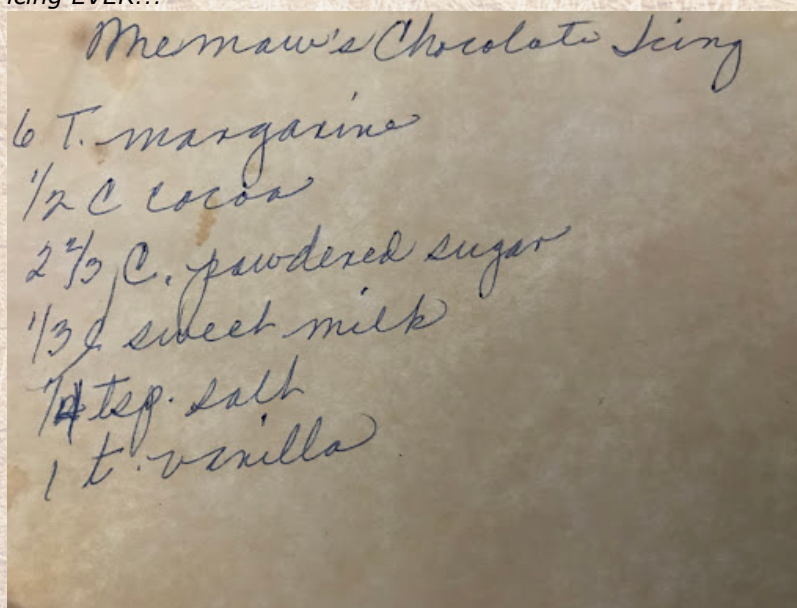 icing EVER...
Memaw's Chocolate Icing
6 T. margarine
1/2 C cocoa
2 2/3 C. powdered sugar
1/3 C sweet milk
1/4 tsp. salt
1 t. vanilla